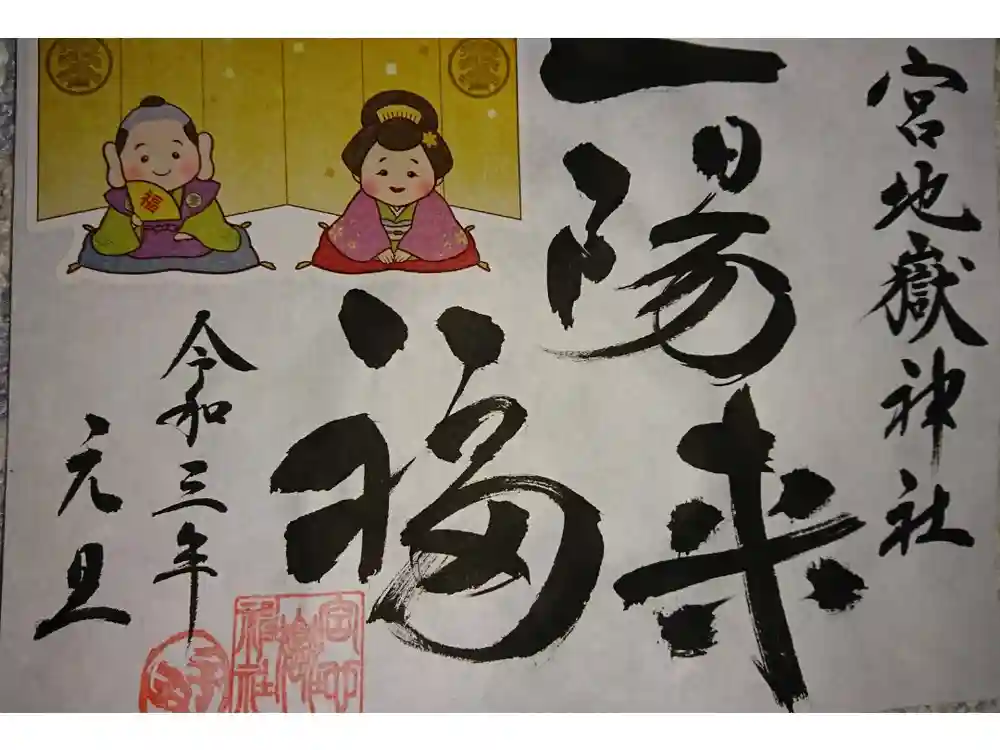 宮地嶽神社
一陽来
福
令和三年
元旦
福
宮地嶽神社